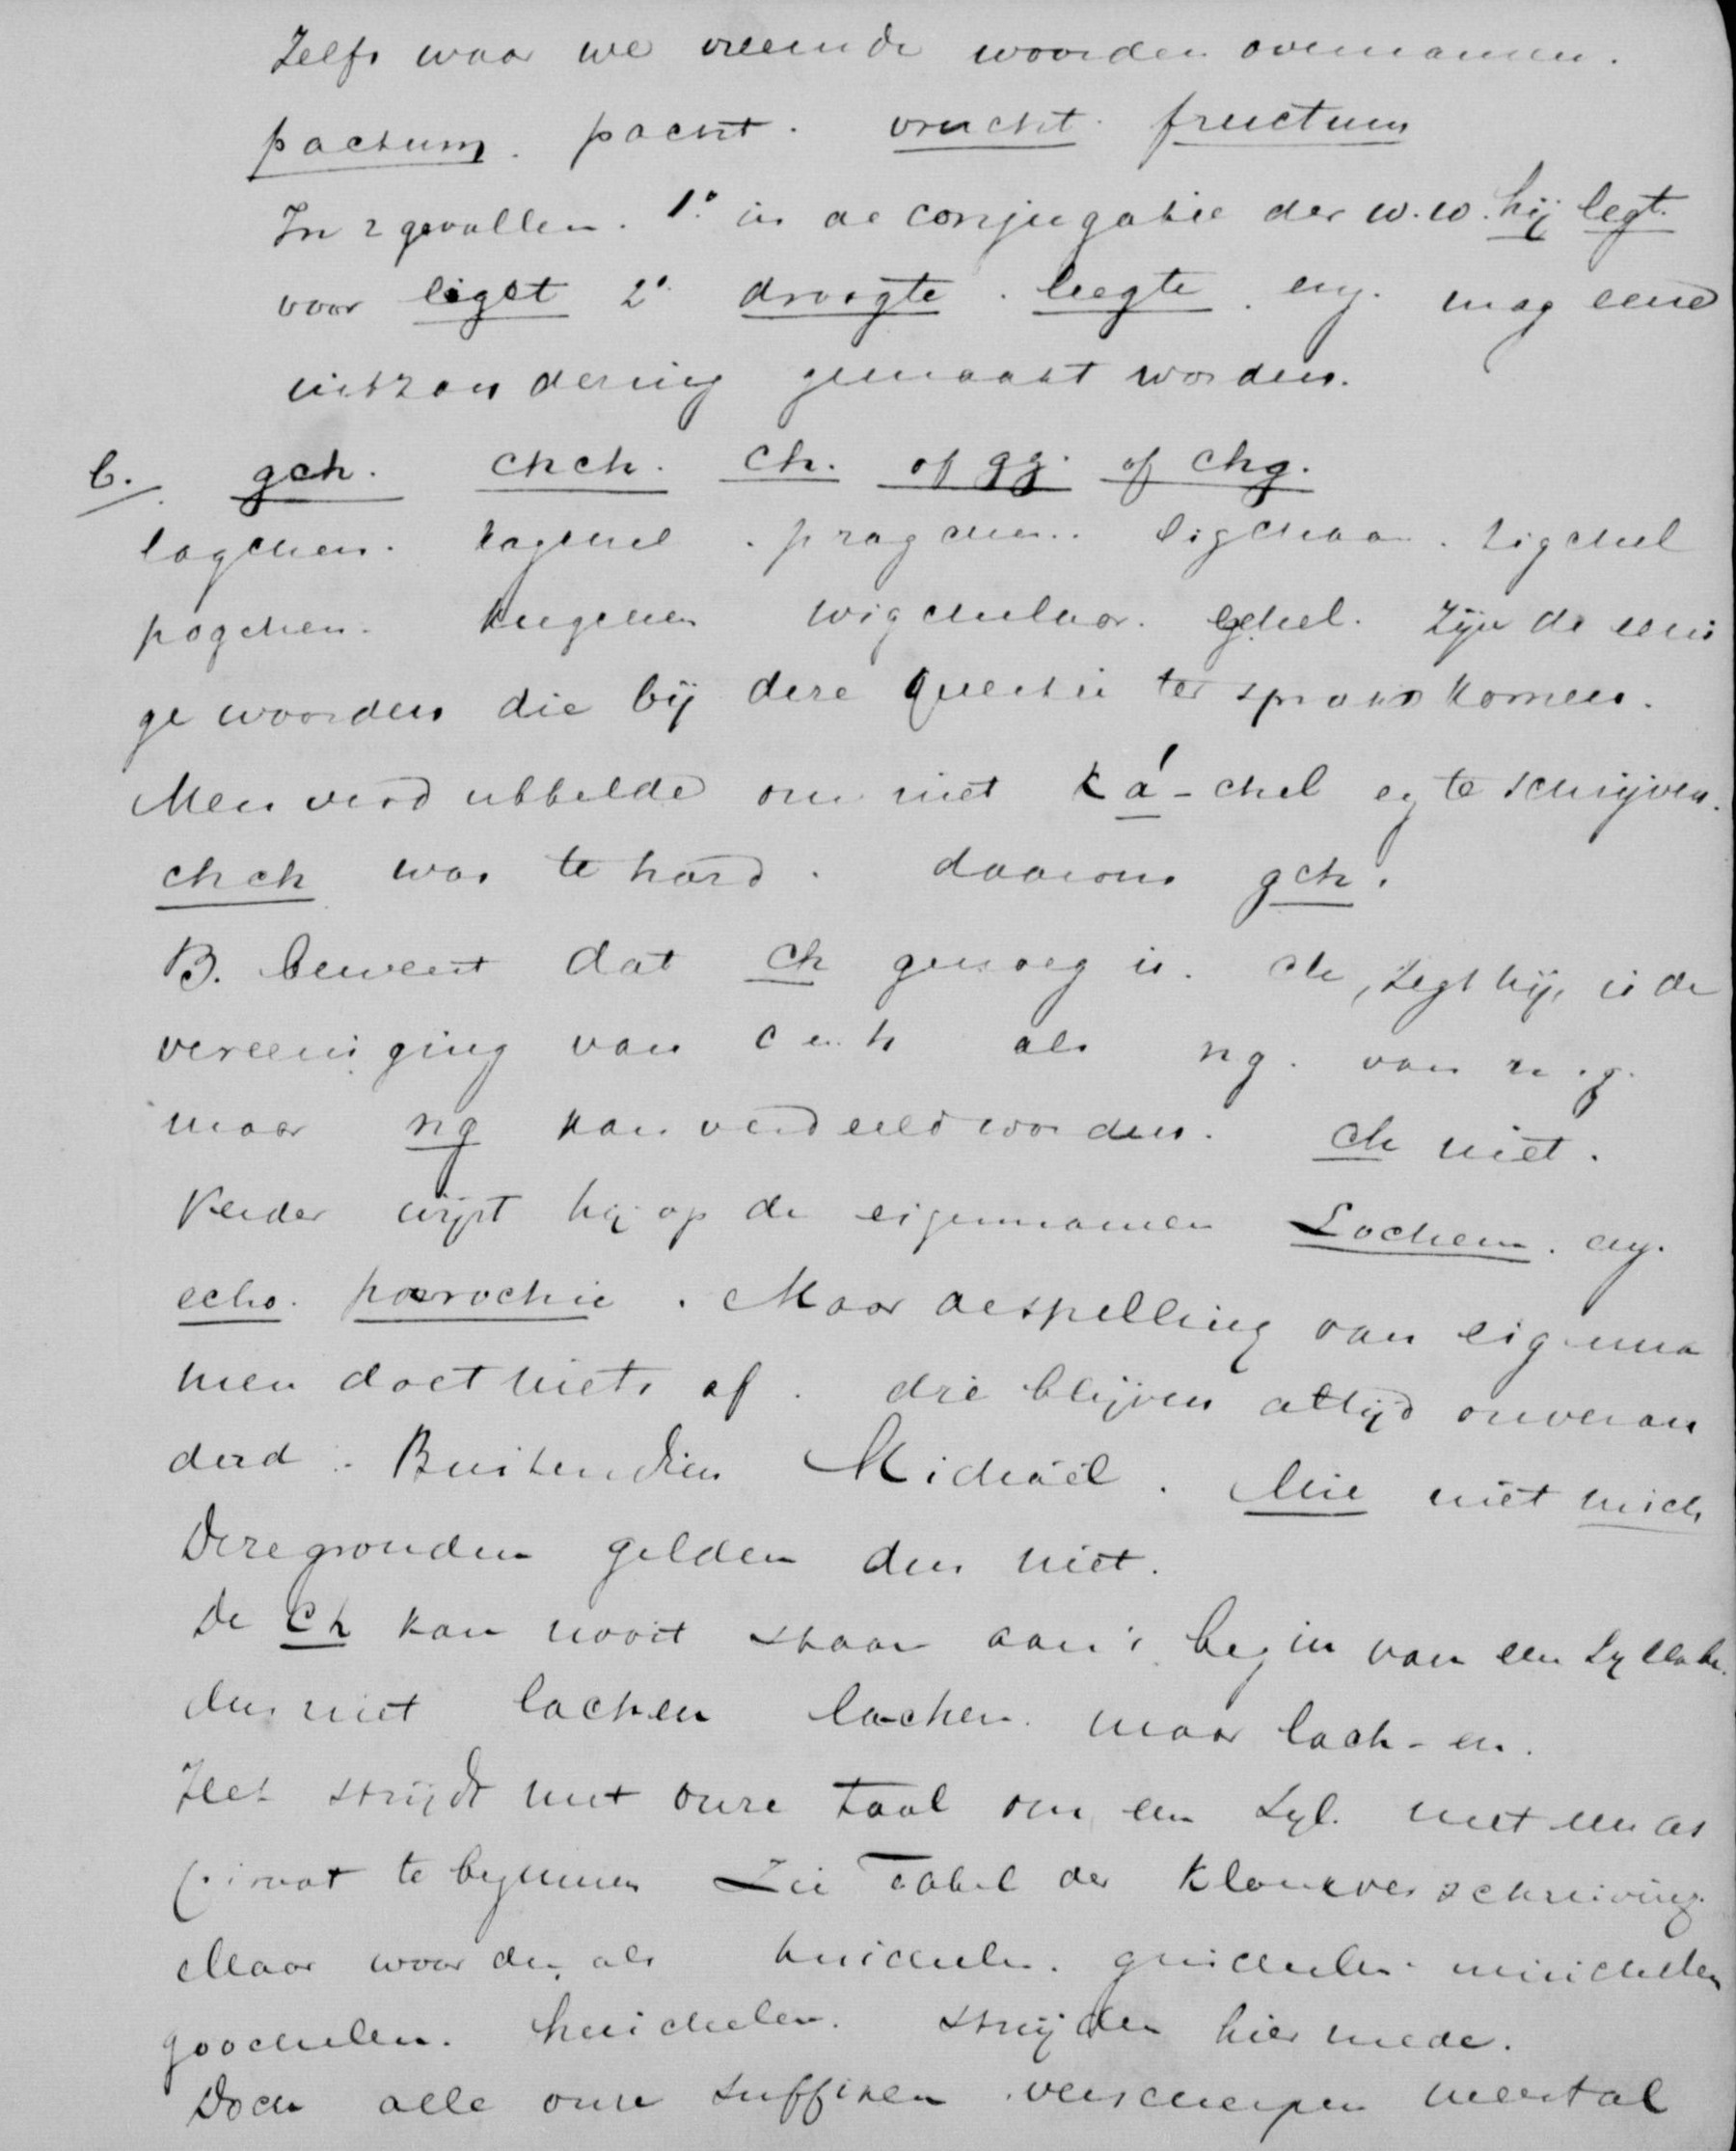 Zelfs waar we vreemde woorden overnamen.
pactum. pacht. vrucht. fructum
In 2 gevallen. 1° in de conjugatie der w.w. hij legt.
voor ligt 2° droogte. leegte. enz. mag eene
uitzondering gemaakt worden.
b. gch. chch. ch. of gg. of chg.
lagchen. kagchel. pragchen. ligchaam. tigchel
pogchen. kugchen wigchelaar. egchel. Zijn de eeni
ge woorden die bij deze questie ter sprake komen.
Men verdubbelde om niet ká-chel enz te schrijven.
chch was te hard. daarom gch.
B. beweert dat ch genoeg is. ch, zegt hij, is de
vereeniging van c en h als ng. van n. g.
maar ng kan verdeeld worden. ch niet.
Verder wijst hij op de eigennamen Lochem. enz.
echo. parochie. Maar de spelling van eigenna
men doet niets af. die blijven altijd onveran
derd. Buitendien Michaël. Mie niet mich
Deze gronden gelden dus niet.
De ch kan nooit staan aan 't begin van een syllabe.
dus niet lachen la-chen. maar lach-en.
Het strijdt met onze taal om een Syl. met een as
piraat te beginnen Zie Tabel der Klankverschuiving.
Maar woorden als huichelen. guichelen. muichelen
goochelen. huichelen. strijden hiermede.
Doch alle onze suffixen verscherpen meestal